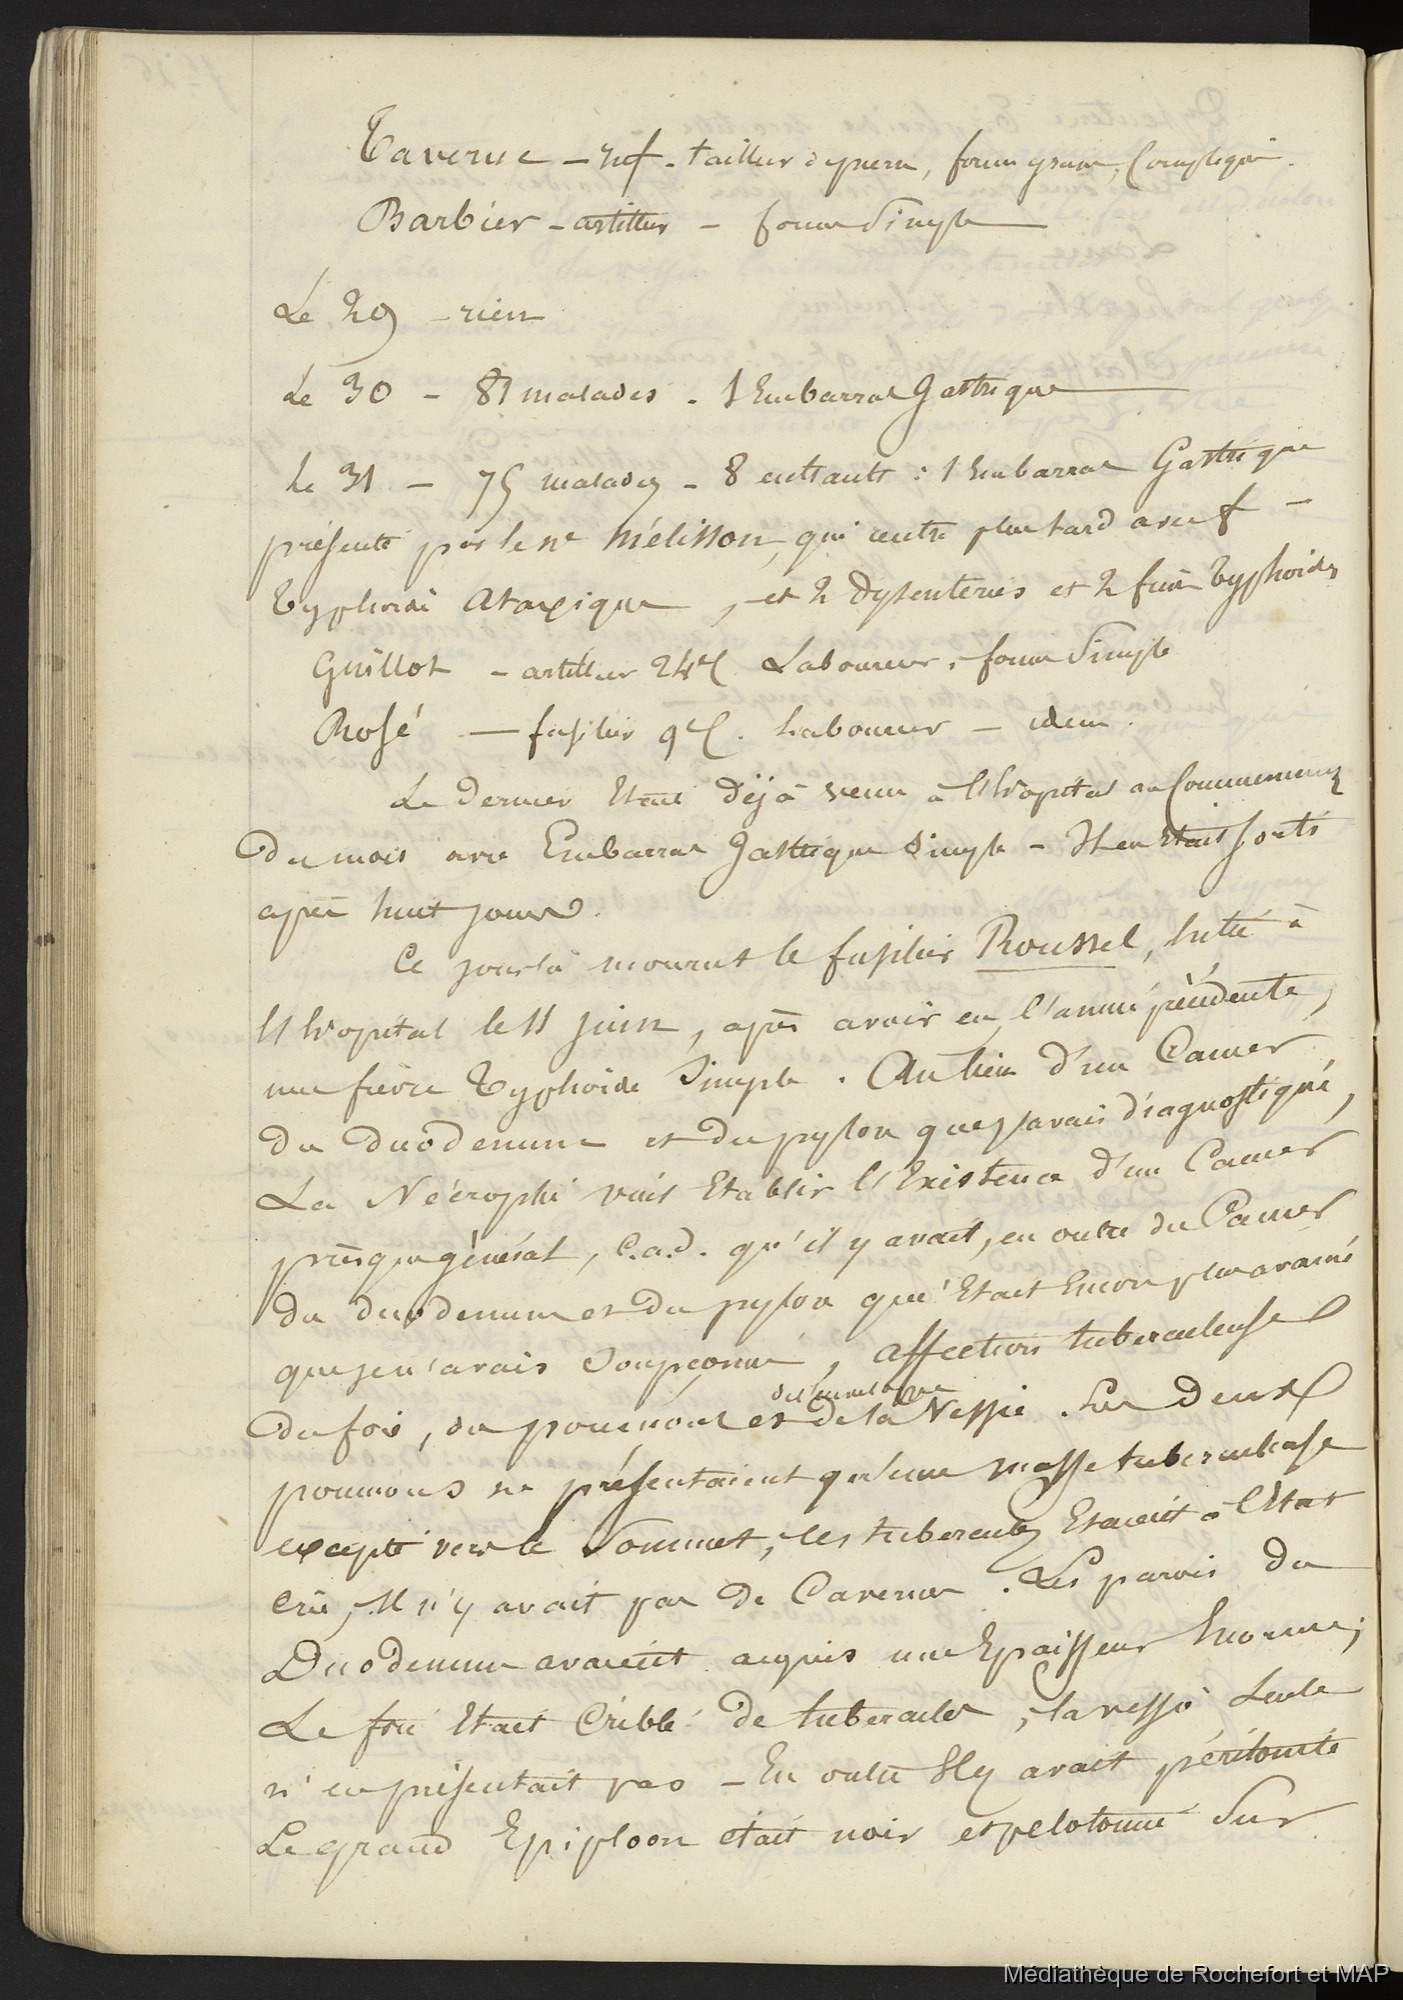 Taverne - inf. tailleur de pierre, forme grave, compliquée.
Barbier - artilleur - forme Simple
Le 29 - rien
Le 30 - 81 malades - 1 Embarras Gastrique
Le 31 - 75 malades - 8 entrants : 1 Embarras Gastrique
présenté par le né Mélisson, qui rentre plus tard avec f -
typhoïde ataxique, et 2 dysenteries et 2 fièv typhoïdes
Guillot - artilleur 24e Laboureur, forme Simple
Rosé - fusilier 9e. Laboureur - idem.
Le dernier Etait déjà venu à l'hôpital au Commencemt
Du mois avec Embarras gastrique simple - Il en Etait sorti
après huit jours.
Ce jour là mourut le fusilier Roussel, Entré à
l'hôpital le 11 juin, après avoir eu l'année précédente,
une fièvre typhoïde Simple. Au lieu d'un Cancer
du duodenum et du pylore que j'avais diagnostiqué,
La Nécropsie vint Etablir l'Existence d'un Cancer
presque général, c.a.d. qu'il y avait, en outre du Cancer
du duodenum et du pylore qui Etait Encore plus avancé
que je n'avais Soupçonné, affection tuberculeuse
Du foie, du poumon et de la Vessie. Les deux
poumons ne présentaient qu'une masse tuberculeuse
excepté vers le Sommet, les tubercules Etaient à l'Etat
crû, Il n'y avait pas de Caverne. Les parois du
Duodenum avaient acquis une Epaisseur Enorme;
Le foie Etait Criblé de tubercules, la vessie Seule
n'en présentait pas - En outre Il y avait péritonite
Le grand Epiploon était noir et pelotonné Sur
Médiathèque de Rochefort et MAP